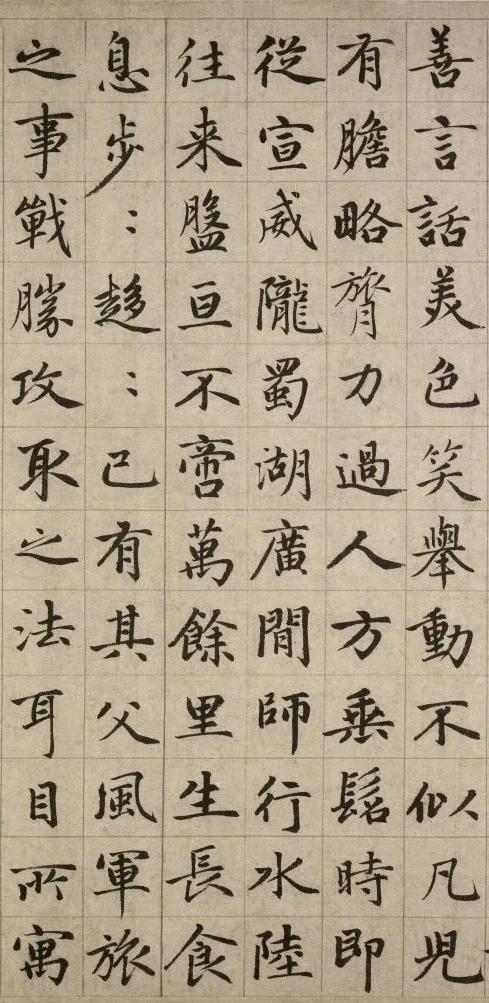 善言話美色笑舉動不似凡兒
有膽略膂力過人方垂髫時即
從宣威隴蜀湖廣間師行水陸
往来盤亘不啻萬餘里生長食
息步〻趍〻已有其父風軍旅
之事戰勝攻取之法耳目所寓